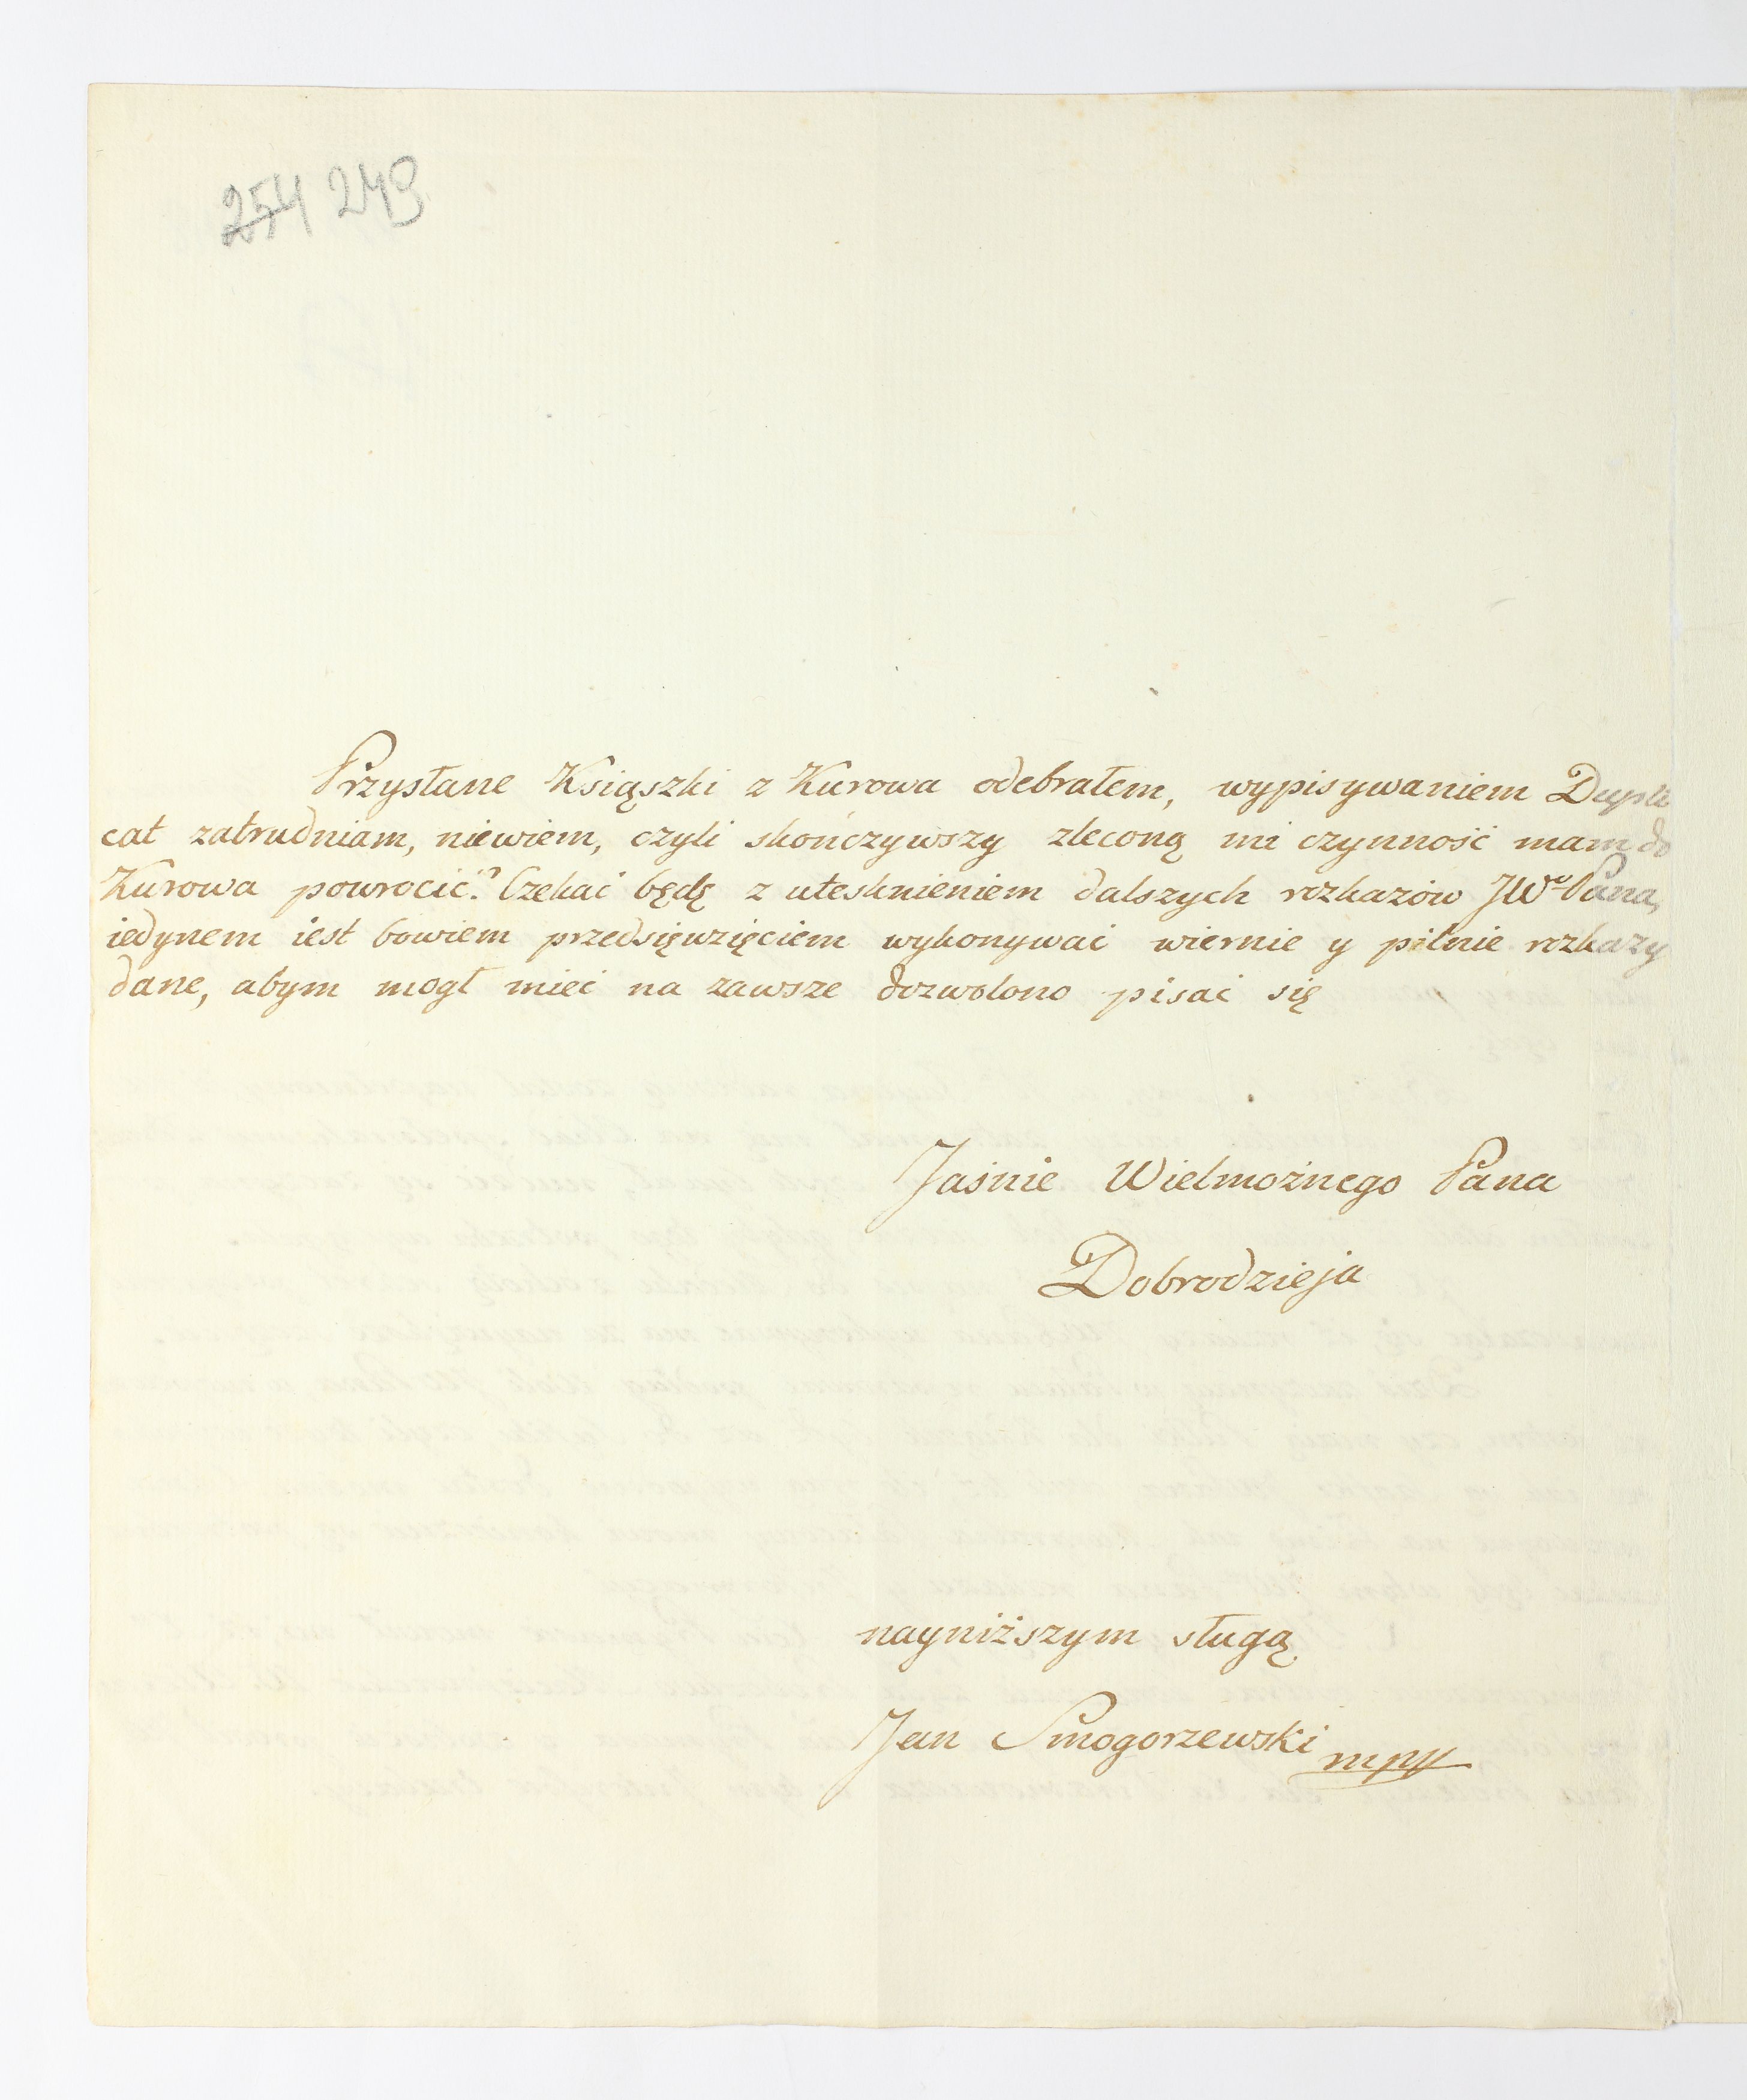 254 249
Przysłane Książki z Kurowa odebrałem, wypisywaniem Dupli
cat zatrudniam, niewiem, czyli skończywszy zleconą mi czynność mam do
Kurowa powrocić? Czekać będę z utesknieniem dalszych rozkazów JWº Pana,
iedynem iest bowiem przedsięwzięciem wykonywać wiernie y pilnie rozkazy
dane, abym mogł mieć na zawsze dozwolono pisać się
Jaśnie Wielmożnego Pana
Dobrodzieja
nayniższym sługą
Jan Smogorzewski mpp